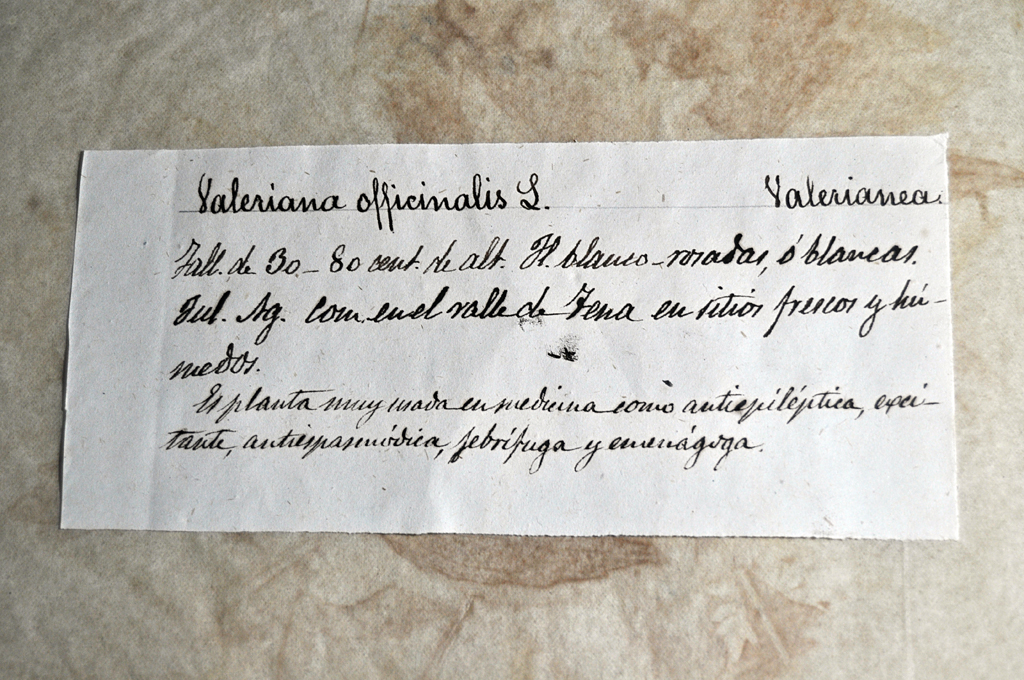 Valeriana officinalis L. Valerianea.
Tall. de 30-80 cent. de alt. Fl. blanco-rosadas, ó blancas.
Jul. Ag. Com. en el valle de Tena en sitios frescos y hú-
medos.
Es planta muy usada en medicina como antiepiléptica, exci-
tante, antiespasmódica, febrífuga y emenágoga.